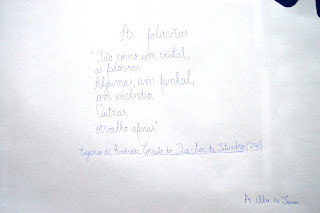 As palavras
"São como um cristal,
as palavras.
Algumas, um punhal,
um incêndio.
Outras,
orvalho apenas"
Eugénio de Andrade, Coração do Dia-Mar de Setembro
A